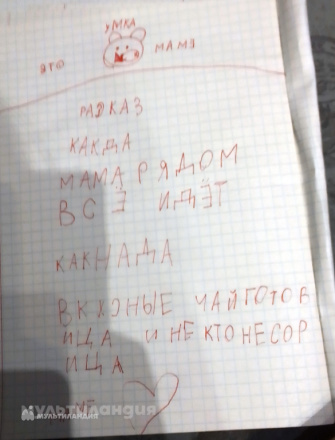 УМКА
ЭТО МАМЭ
РАЗКАЗ
КАКДА
МАМА РЯДОМ
ВСЁ ИДЁТ
КАКНАДА
ВКХОНЫЕ ЧАЙГОТОВ
ИЦА И НЕКТОНЕСОР
ИЦА
мультиландия
МУЛЬТИЛАНДИЯ